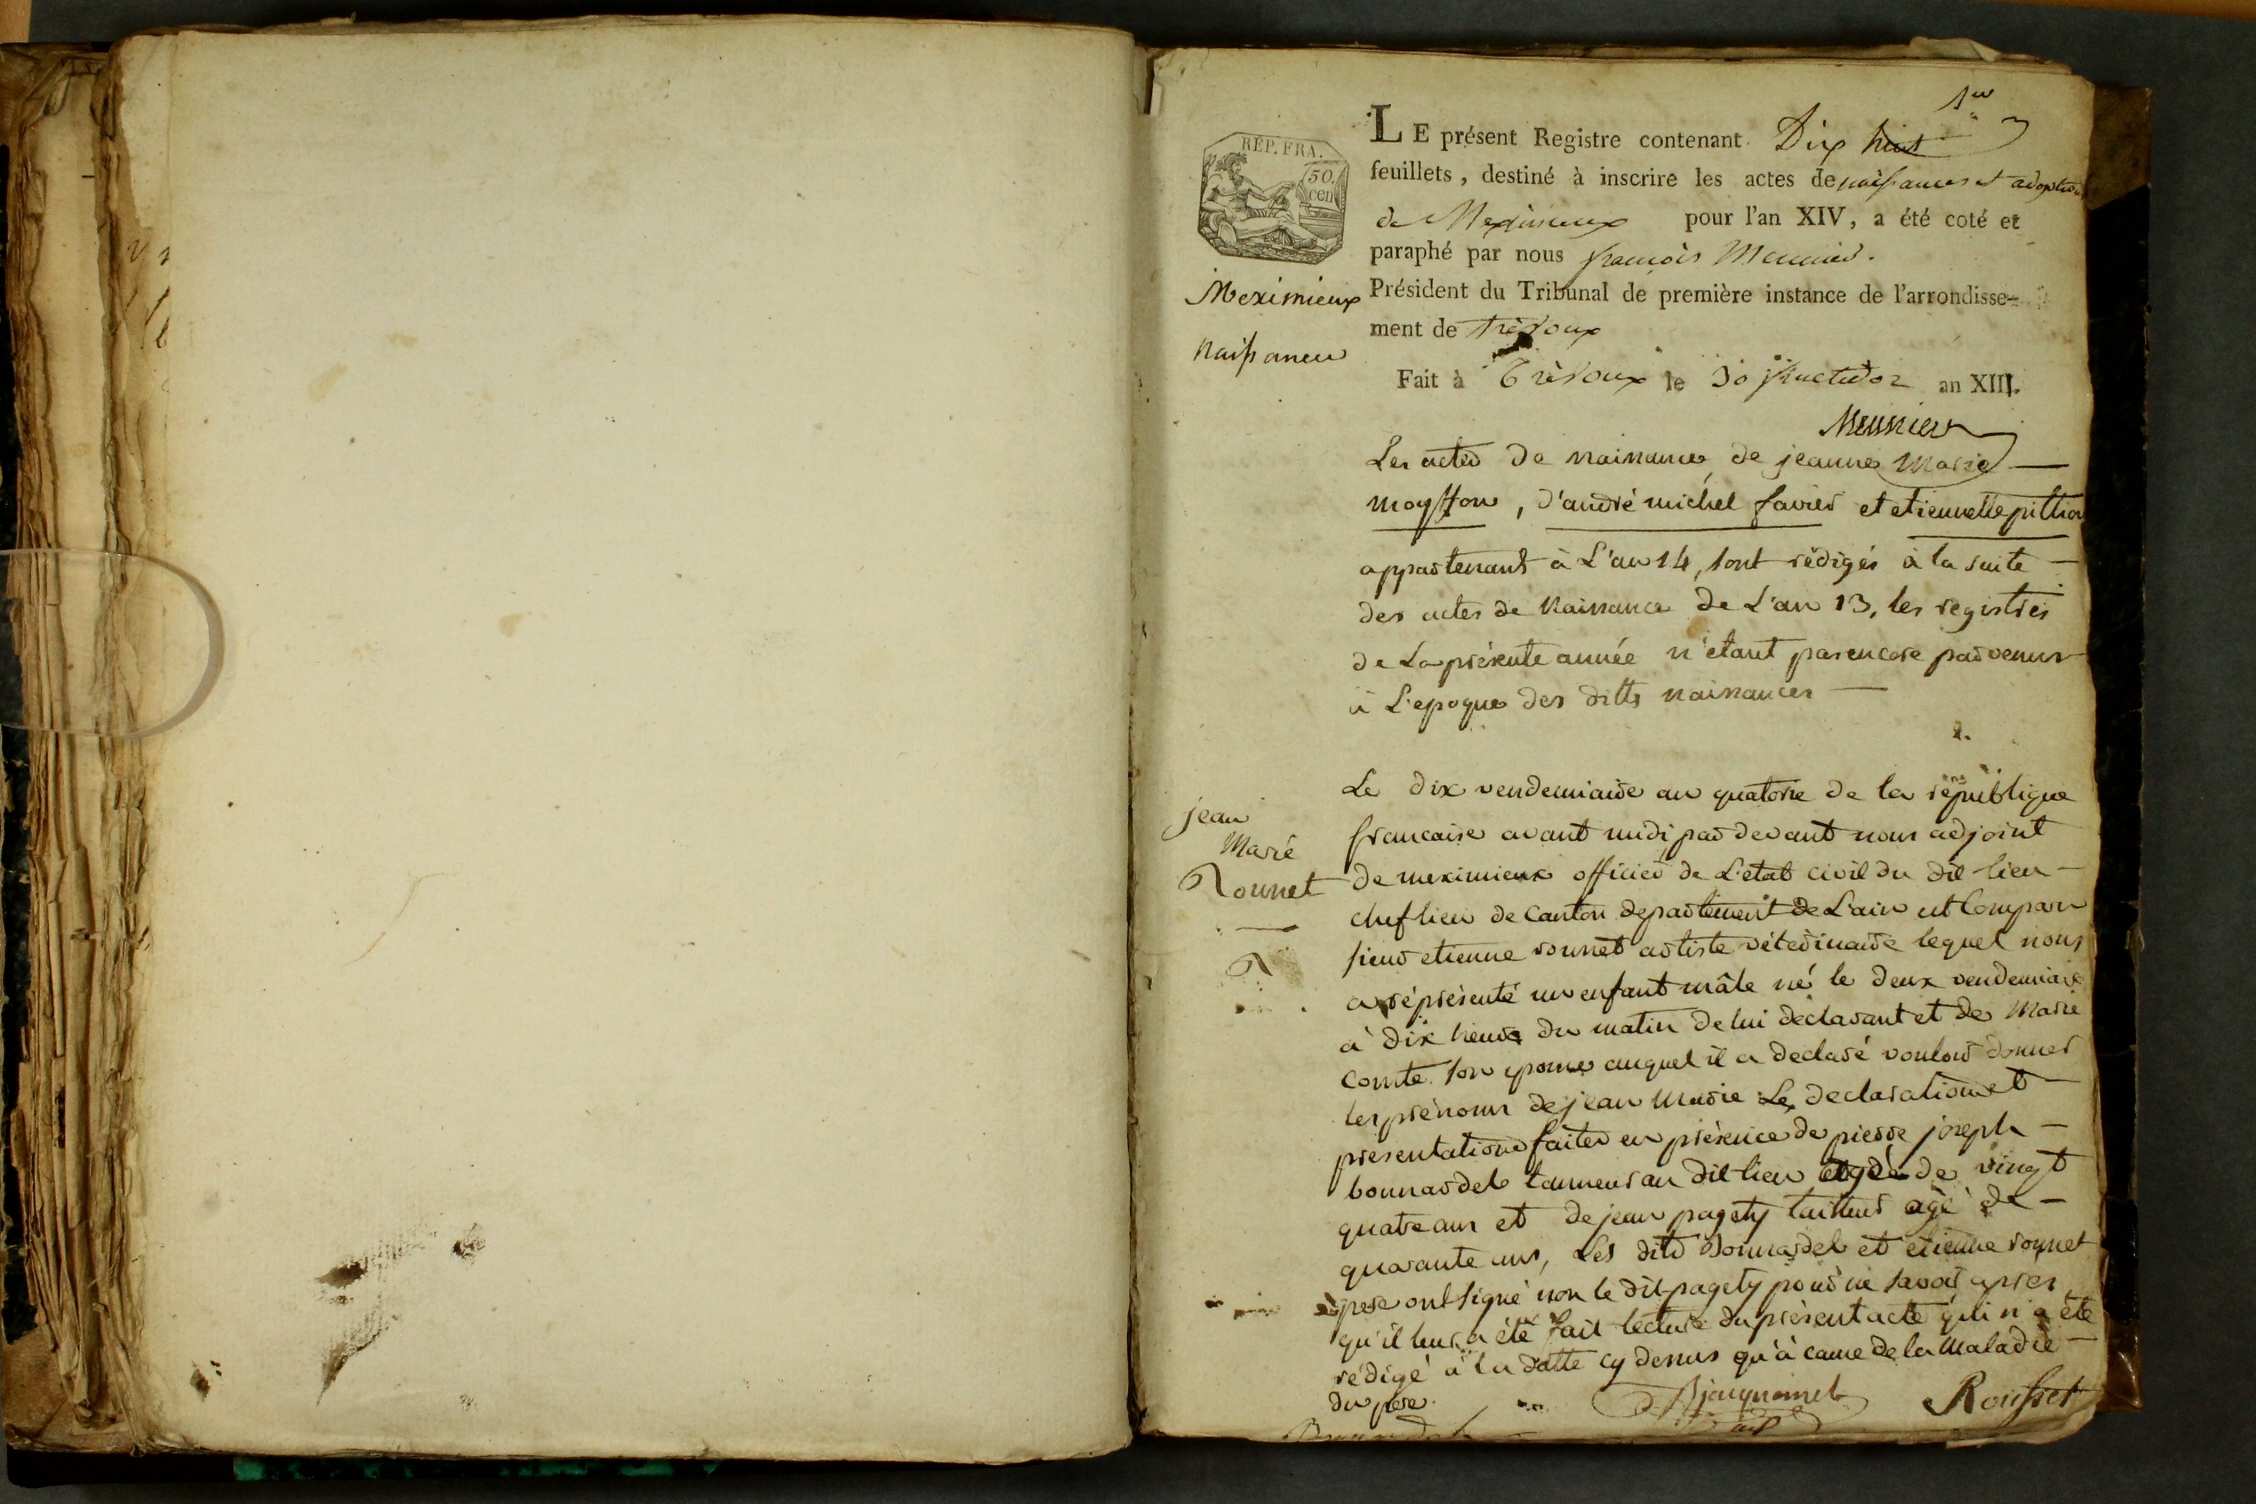 1er
RÉP. FRA.
50.
cen
LE présent Registre contenant Dix huit
feuillets, destiné à inscrire les actes de naissances et adoption
de Meximieux pour l'an XIV, a été coté et
paraphé par nous françois Meunier.
Meximieux
Président du Tribunal de première instance de l'arrondisse-
ment de trévoux
Naissances
Fait à Trévoux le 30 fructidor an XIII.
Meunier
Les actes de naissance de jeanne Marie
moyffon, d'andré michel favier et etiennette pittion
appartenant à L'an 14, sont rédigés à la suite
des actes de Naissance de L'an 13, les registres
de La présente année n'étant pas encore parvenus
à L'epoque des dittes naissances
Le dix vendemiaire an quatorze de la république
jean
Marie
Ronnet
francaise avant midi par devant nous adjoint
de meximieux officier de L'etat civil du dit lieu
chef lieu de Canton departement de L'ain est Comparu
sieur etienne ronnet artiste vétérinaire lequel nous
a réprésenté un enfant mâle né le deux vendemiaire
à dix heure du matin de lui déclarant et de Marie
comte son epouse auquel il a declaré vouloir donner
les prénoms de jean Marie Les declaration et
presentation faites en présence de pierre joseph
bonnardel tanneur au dit lieu agé de vingt
quatre ans et de jean pagety tailleur agé de
quarante ans, Les dits Bonnardel et etienne ronnet
pere ont signé non le dit pagety pour ne savoir apres
qu'il leur a été fait lecture du présent acte qui n'a été
rédigé à la datte cy dessus qu'à cause de la Maladie
du pere.